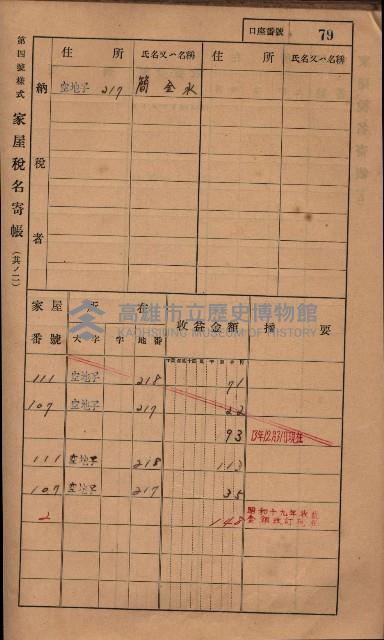 口座番號 79
第四號樣式 家屋稅名寄帳(其ノ二)
納稅者
住所 氏名又ハ名稱 住所 氏名又ハ名稱
空地子 217 簡全水
家屋番號 家屋所在 收益金額 摘要
大字 字 地番
高雄市立歷史博物館
KAOHSIUNG MUSEUM OF HISTORY
111 空地子 218 71
107 空地子 217 22
93 13年12月31日現在
111 空地子 218 113
107 空地子 217 35
2 148 昭和十九年收益
金額改訂